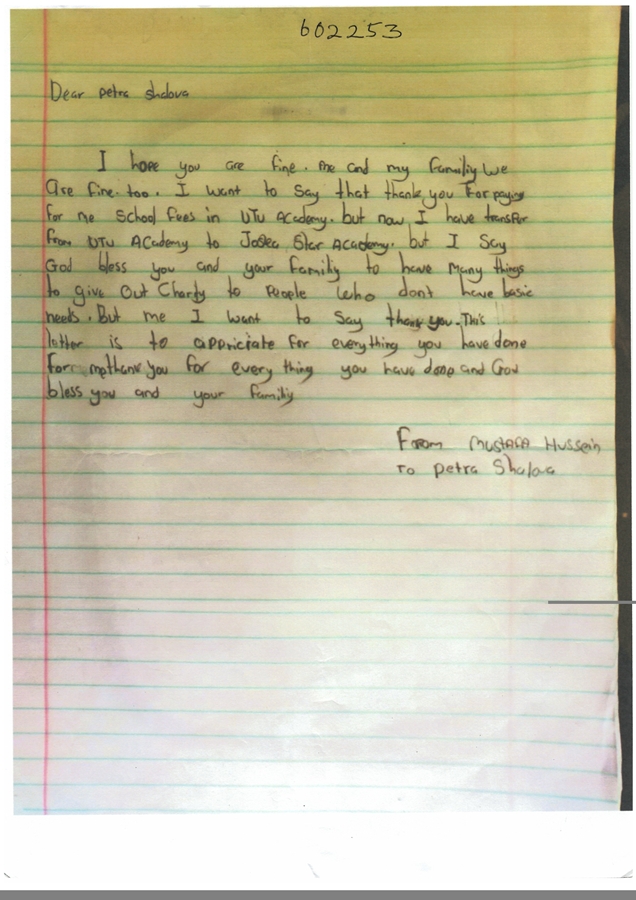 602253
Dear petra shalova
I hope you are fine. me and my Familiy we
are fine. too. I want to say that thank you For paying
for me School fees in UTU Academy. but now I have transfer
from UTU Academy to Star Academy. but I Say
God bless you and your Familiy to have Many things
to give Out to People who dont have basic
needs. But me I want to Say thank you. This
letter is to appriciate for everything you have done
For me thank you for every thing you have done and God
bless you and your familiy
From Mustafa Hussein
To petra Shalova